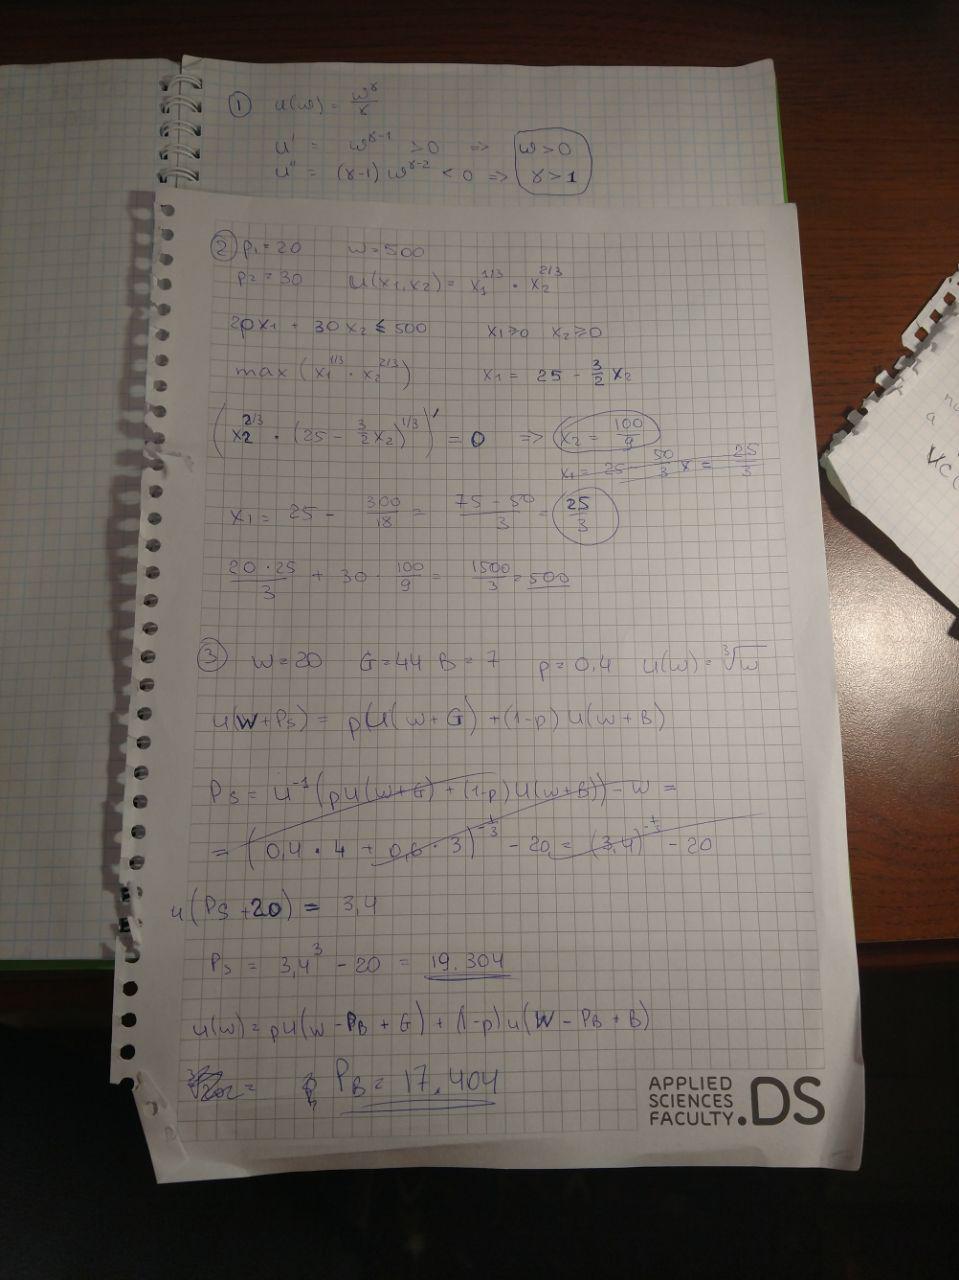 ① u(w) = w^γ/γ
u' = w^(γ-1) > 0 => w > 0
u'' = (γ-1) w^(γ-2) < 0 => γ > 1
② p₁ = 20 w = 500
p₂ = 30 u(x₁,x₂) = x₁^(1/3) · x₂^(2/3)
20x₁ + 30x₂ ≤ 500 x₁ ≥ 0 x₂ ≥ 0
max (x₁^(1/3) · x₂^(2/3)) x₁ = 25 - 3/2 x₂
(x₂^(2/3) · (25 - 3/2 x₂)^(1/3))' = 0 => x₂ = 100/9
x₁ = 25 - 50/3 = 25/3
x₁ = 25 - 300/18 = (75 - 50)/3 = 25/3
(20 · 25)/3 + 30 · 100/9 = 1500/3 = 500
③ w = 20 G = 44 B = 7 p = 0,4 u(w) = ∛w
u(w + Ps) = p(u(w + G) + (1-p) u(w + B)
Ps = u⁻¹(pu(w+G) + (1-p)u(w+B)) - w =
= (0,4 · 4 + 0,6 · 3)^(-1/3) - 20 = (3,4)^(-1/3) - 20
u(Ps + 20) = 3,4
Ps = 3,4³ - 20 = 19.304
u(w) = pu(w - PB + G) + (1-p)u(w - PB + B)
PB = 17.404
APPLIED
SCIENCES
FACULTY.DS